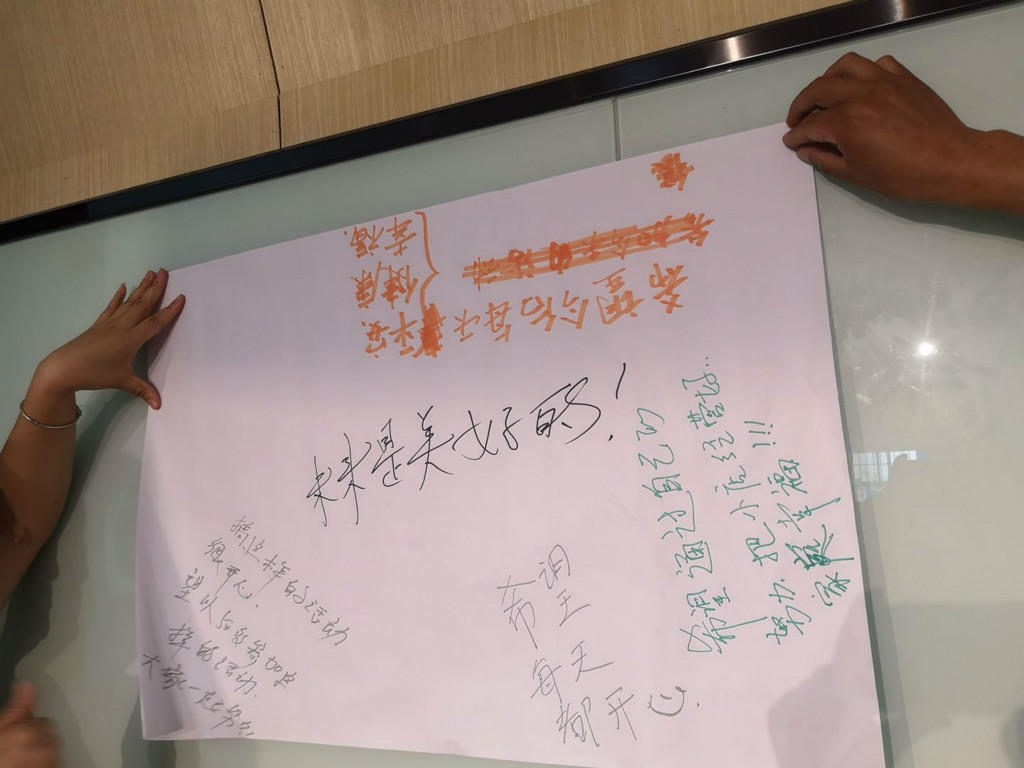 平安
健康
幸福
未来是美好的!
希望通过自己的
努力把小店经营好..
幸福!!!
搞这样的活动
很开心.
望以后多参加这
样的活动.
大家一起努力
希望
每天
都开心.